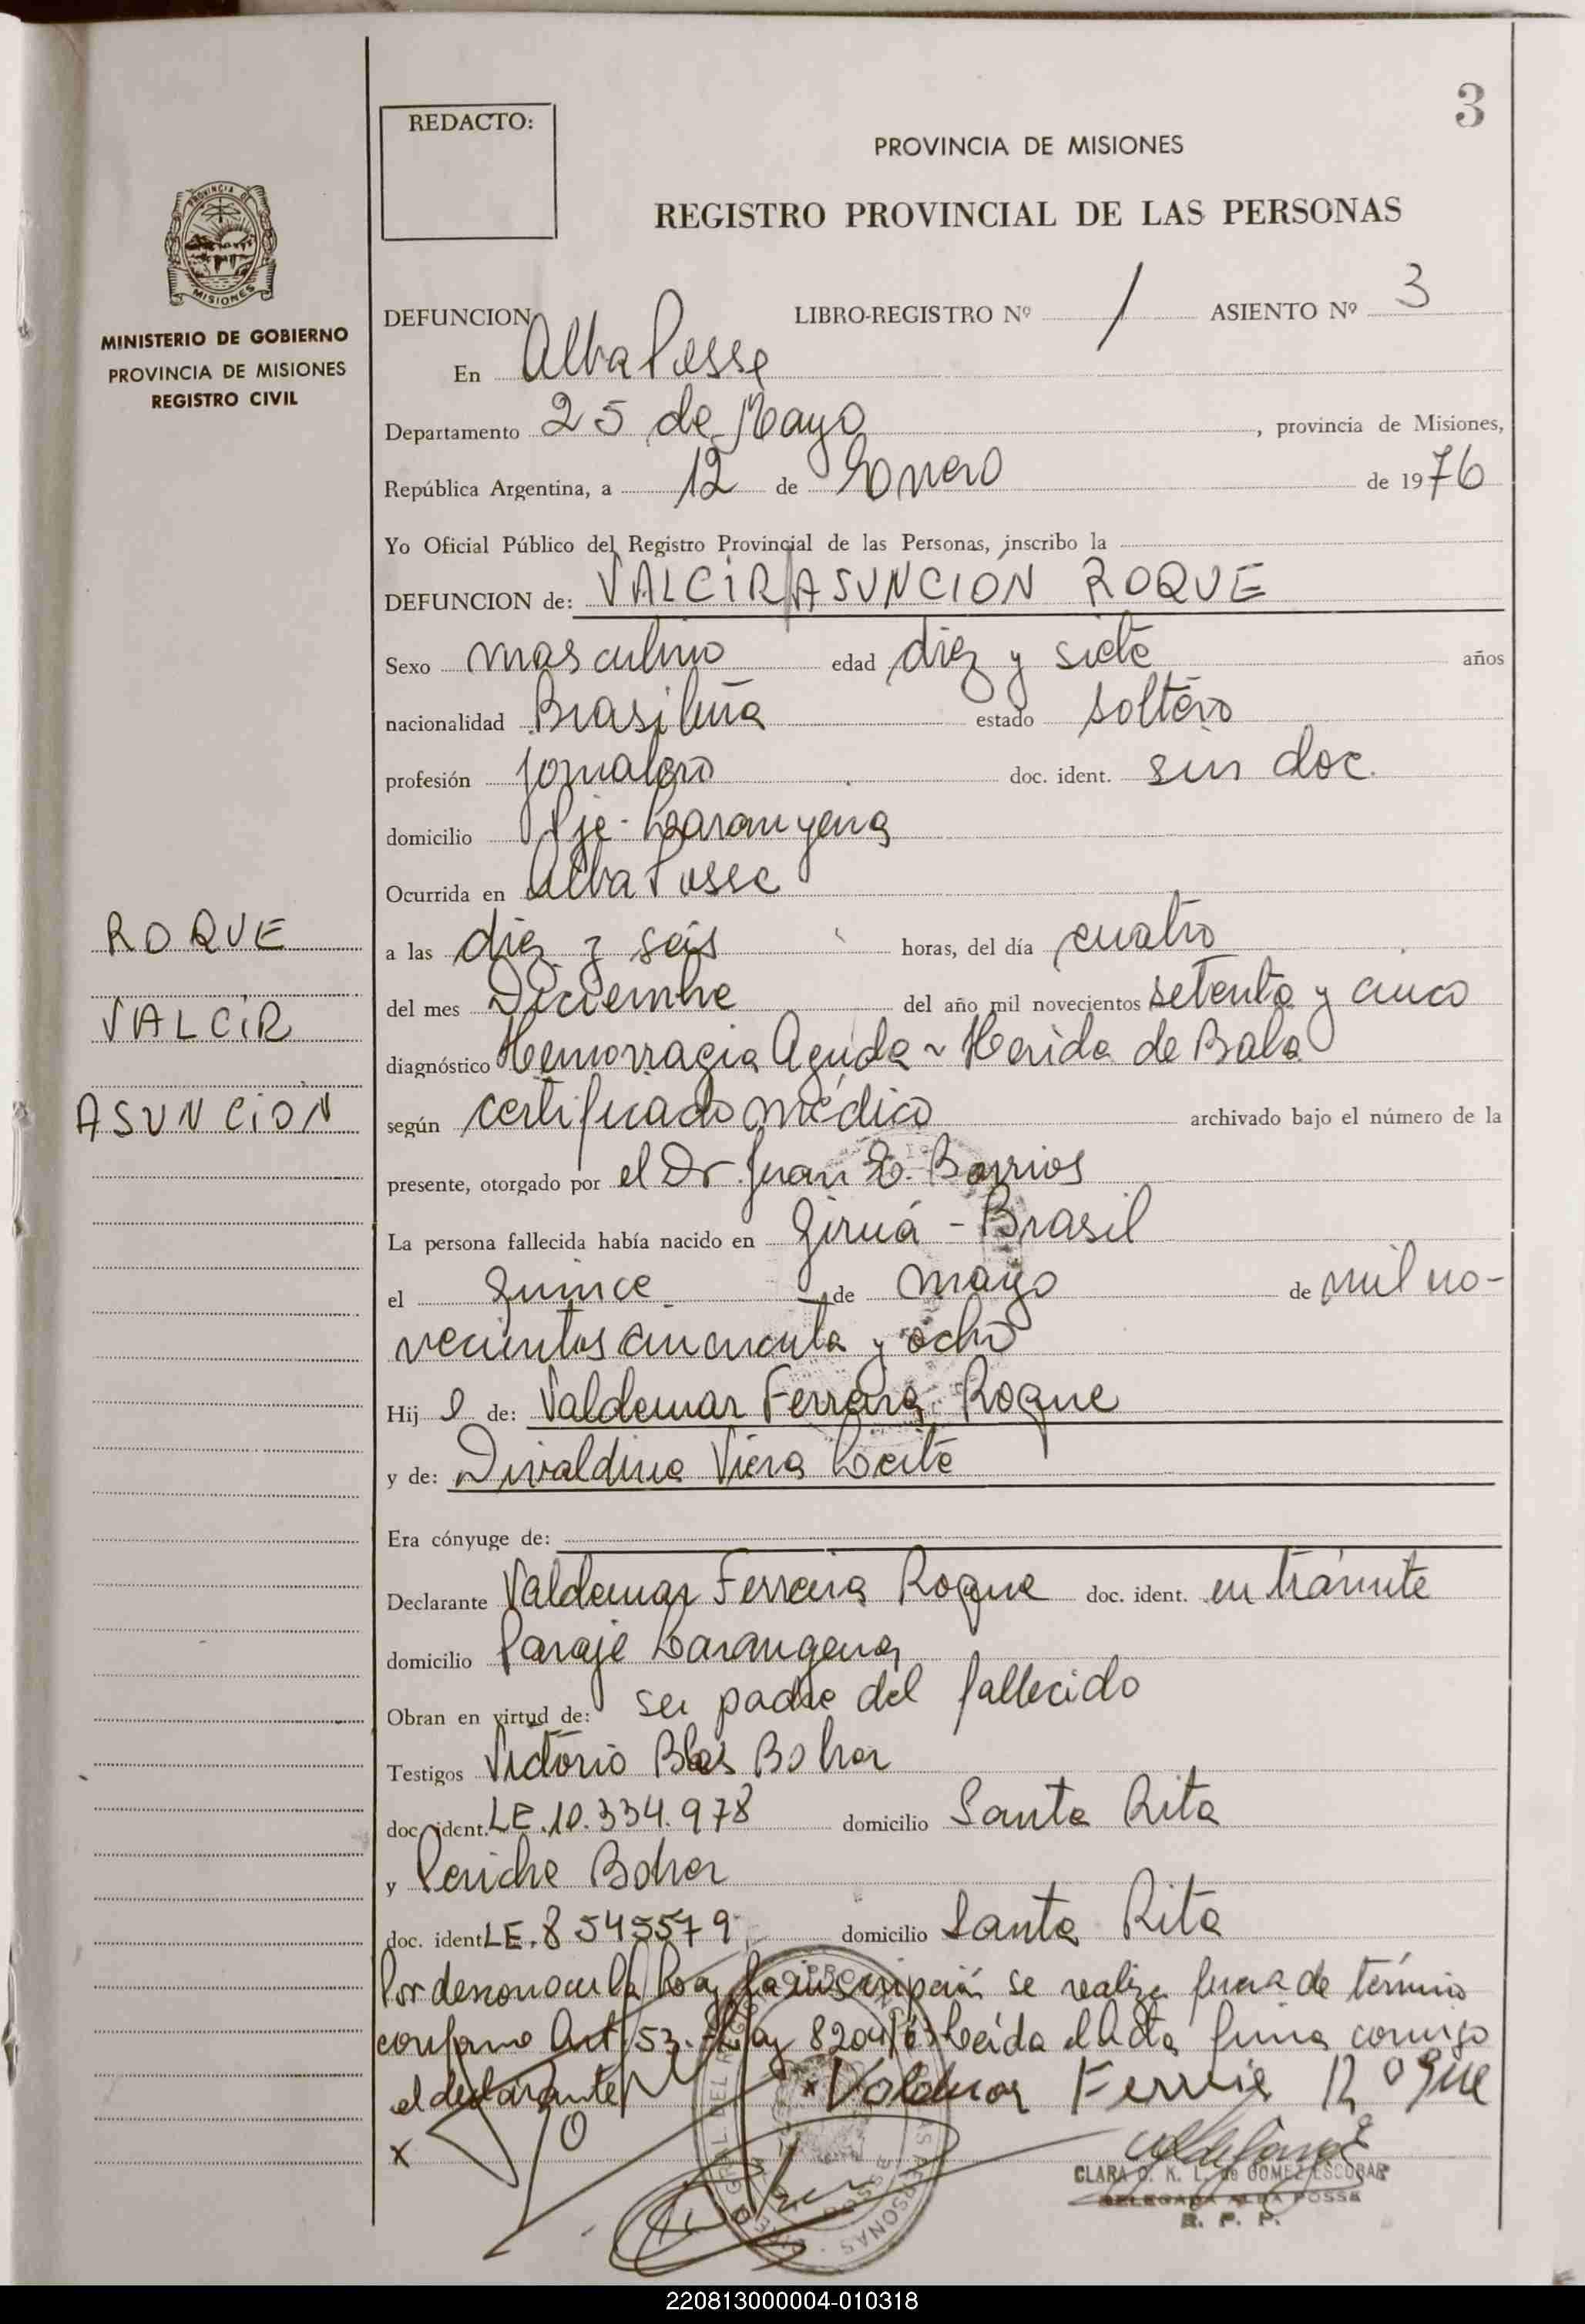 3
REDACTO:
PROVINCIA DE MISIONES
REGISTRO PROVINCIAL DE LAS PERSONAS
PROVINCIA DE
MISIONES
MINISTERIO DE GOBIERNO
PROVINCIA DE MISIONES
REGISTRO CIVIL
ROQUE
VALCIR
ASUNCIÓN
DEFUNCION LIBRO-REGISTRO Nº / ASIENTO Nº 3
En Alba Posse
Departamento 25 de Mayo, provincia de Misiones,
República Argentina, a 12 de Enero de 1976
Yo Oficial Público del Registro Provincial de las Personas, inscribo la
DEFUNCION de: VALCIR ASUNCIÓN ROQUE
Sexo masculino edad diez y siete años
nacionalidad Brasileña estado soltero
profesión jornalero doc. ident. sin doc.
domicilio Pje. Laranyera
Ocurrida en Alba Posse
a las diez y seis horas, del día cuatro
del mes Diciembre del año mil novecientos setenta y cinco
diagnóstico Hemorragia Aguda ~ Herida de Bala
según certificado médico archivado bajo el número de la
presente, otorgado por el Dr. Juan E. Barrios
La persona fallecida había nacido en Giruá - Brasil
el quince de mayo de mil no-
vecientos cincuenta y ocho
Hij o de: Valdemar Ferreira Roque
y de: Divaldina Viera Leite
Era cónyuge de:
Declarante Valdemar Ferreira Roque doc. ident. en trámite
domicilio Paraje Larangera
Obran en virtud de: ser padre del fallecido
Testigos Victorio Blas Boher
doc. ident. LE. 10.334.978 domicilio Santa Rita
y Periche Boher
doc. ident LE. 8545579 domicilio Santa Rita
Por desconocer la Ley la inscripción se realiza fuera de término
conforme Art. 53. Ley 8204/63 Leída el acta firma conmigo
el declarante
x Valdemar Ferreie Roque
x
CLARA O. K. L. de GOMEZ ESCOBAR
DELEGADA ALBA POSSE
R. P. P.
220813000004-010318